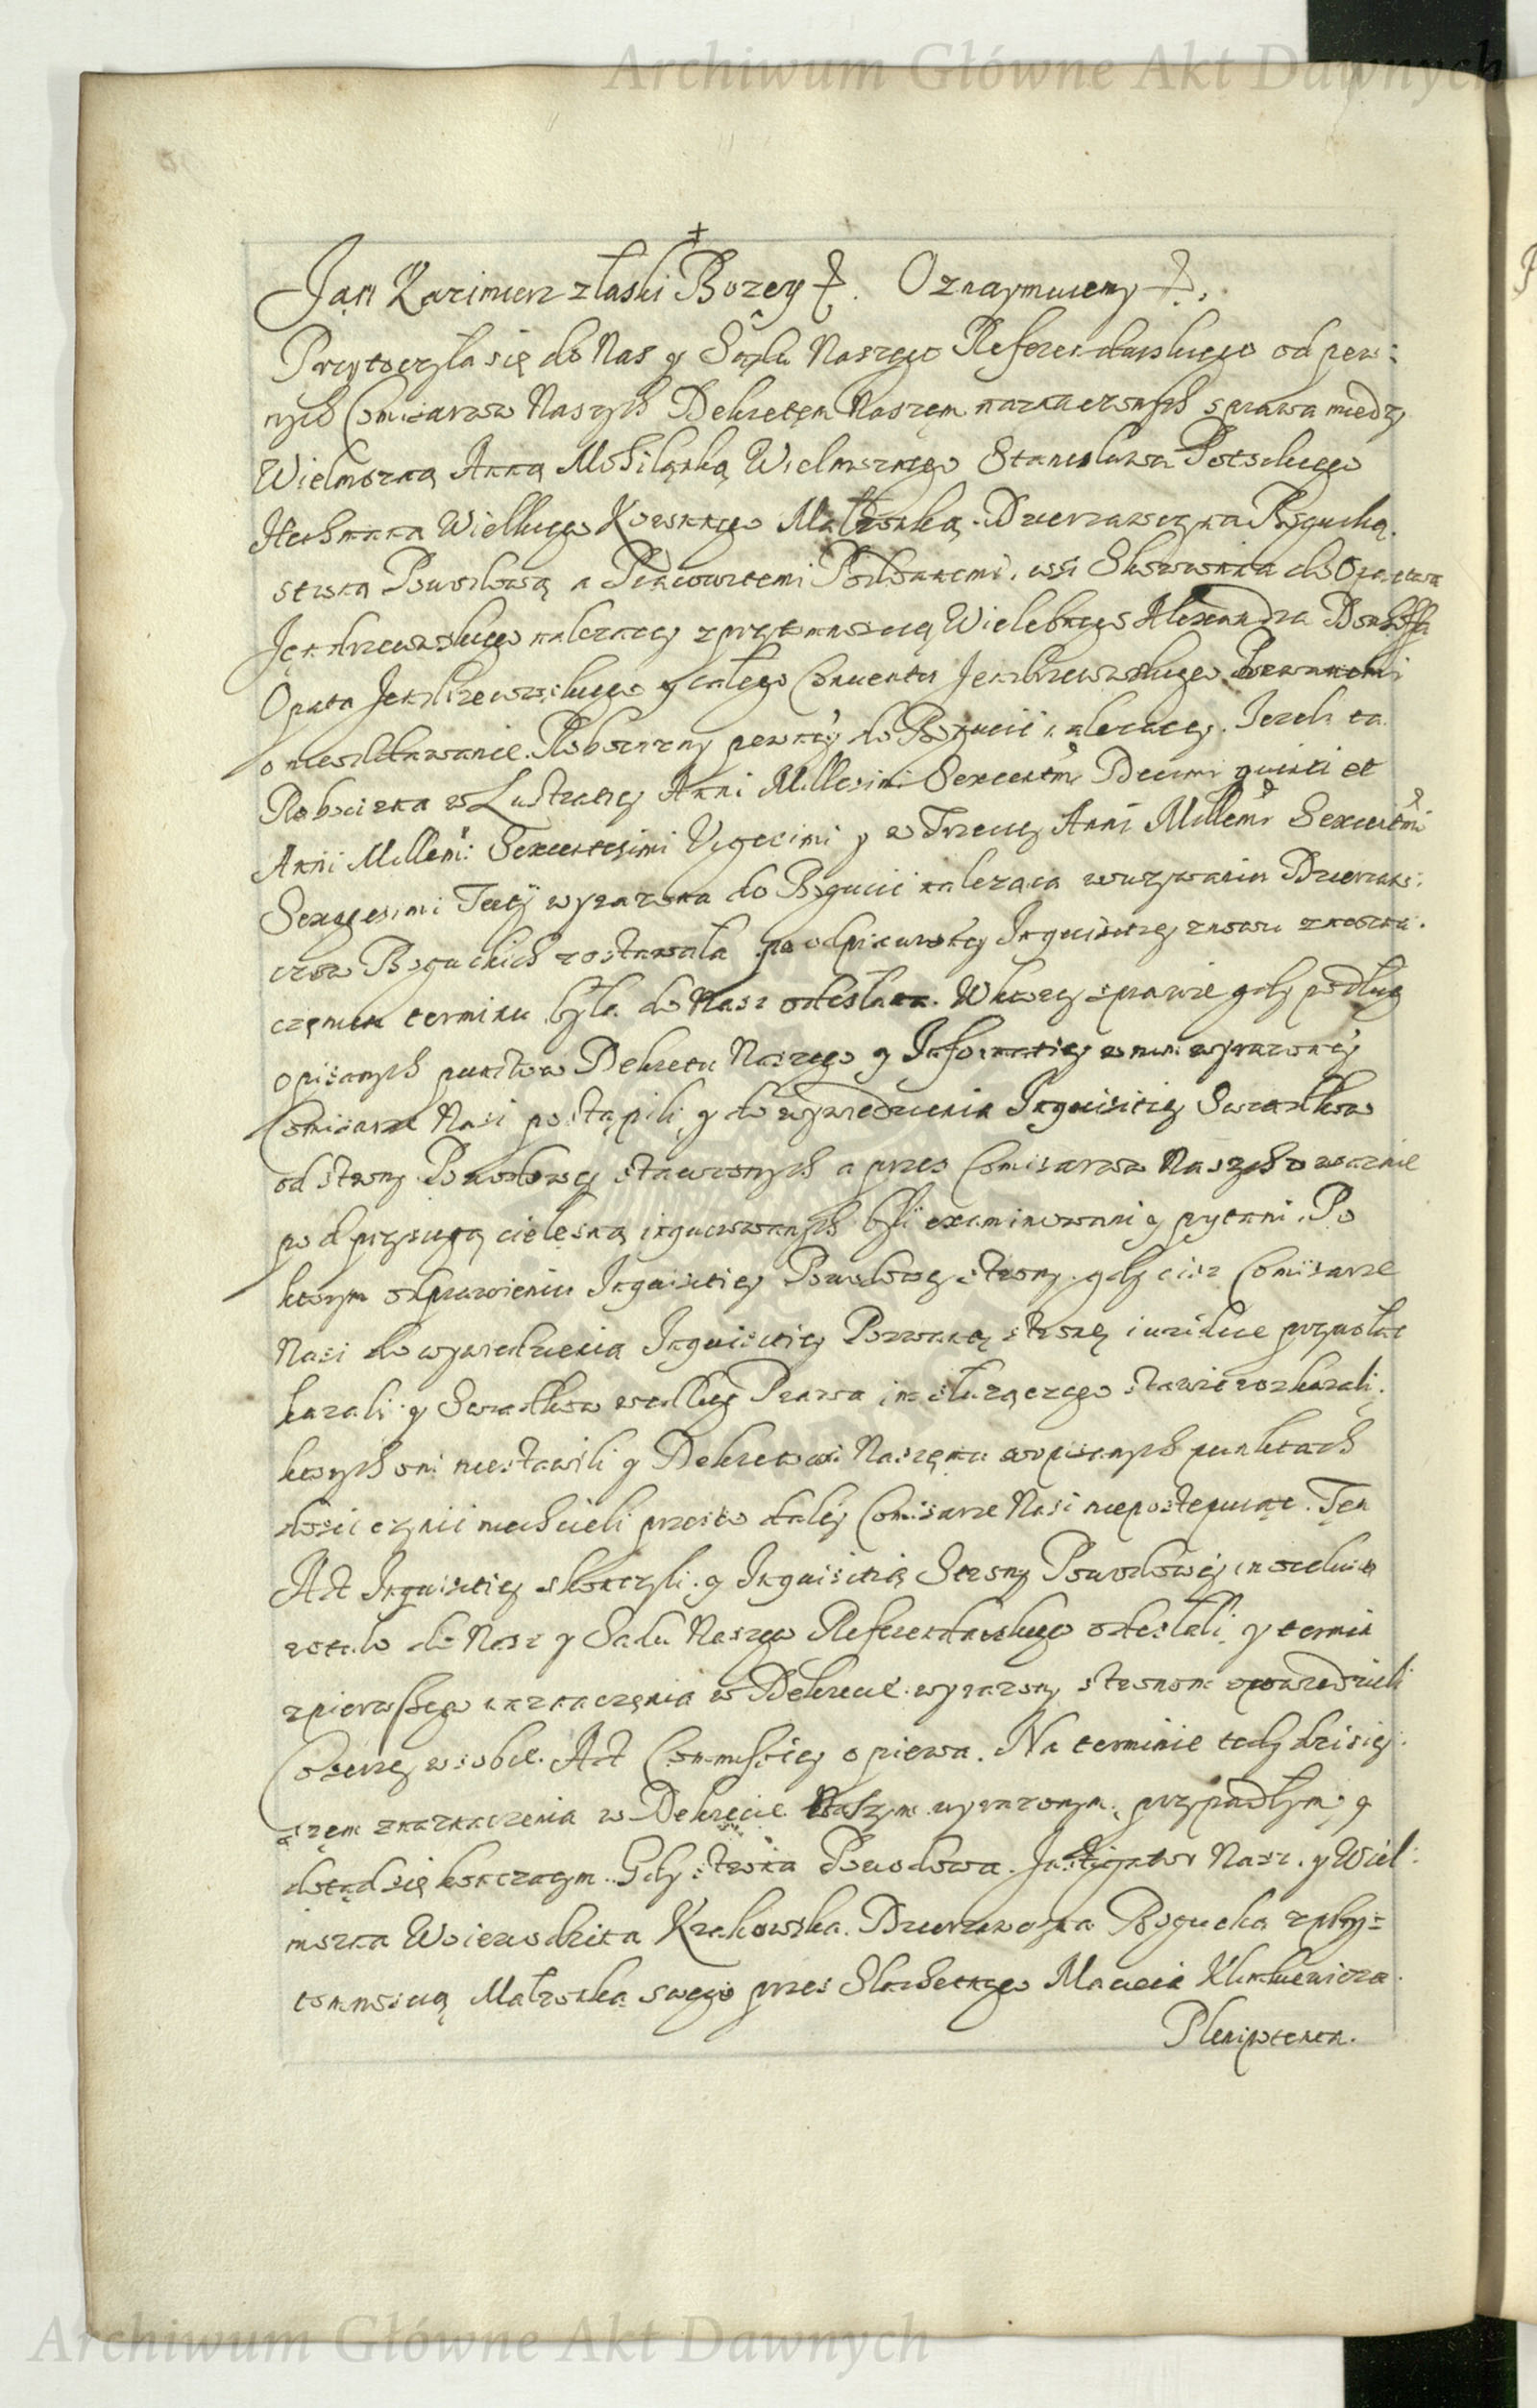 Archiwum Główne Akt Dawnych
Jan Kazimierz z łaski Bozey &. Oznaymuiemy &.
Przytoczyła się do Nas y Sądu Naszego Referendarskiego od pew:
nych Comisarzow Naszych Dekretem Naszem naznaczonych sprawa miedzy
Wielmozną Anną Mohilanką Wielmoznego Stanisława Potockiego
Hethmana Wielkiego Koronnego Małzonką. Dzierzawczyna Bogucką.
stroną Powodową a Pracowitemi Poddanemi. wsi Skowronna do Opactwa
Jendrzeiowskiego nalezacey z przytomnoscią Wielebnego Alexandra Denhoffa
Opata Jendrzeiowskiego y całego Conuentu Jendrzeiowskiego Pozwanemi
o nieoddawanie. Robocizny pewney do Bogucic nalezacey. Jezeli ta
Robocizna w Lustratiey Anni Millesimi Sexcentmi Decimi quinti et
Anni Millemi: Sexcentesimi Vigecimi y w Trzeciey Anni Millemi Sexcentmi
Sexagesimi Tertij wyrazona do Bogucic nalezaca w uzywaniu Dzierzaw:
czow Boguckich zostawała po odprawioney Inquisitiey znowu z naszna:
częniem terminu była do Nas odesłana. W ktorey sprawie gdy podług
opisanych punktow Dekretu Naszego y Informatiey w nim wyrazoney
Comisarze Nasi postąpili, y do wywiedzienia Inquisitiey Swiadkow
od strony Powodowey stawionych a przez Comisarzow Naszych wwaznie
pod przysięgą cielęsną inquirowanych byli examinowani y pytani. Po
ktorym odprawieniu Inquisitiey Powodowey strony. gdy ciz Comisarze
Nasi do wywiedzienia Inquisitiey Pozwaną stronę iuridice przywołac
kazali y Swiadkow według Prawa im słuzączego stawic rozkazali.
ktorych oni niestawili y Dekretowi Naszęmu w opisanych punktach
dosic czynic niechcieli przeto daley Comisarze Nasi niepostepuiąc. Ten
Akt Inquisitiey skonczyli. y Inquisitią Strony Powodowey in occluso
rotulo do Nas y Sadu Naszego Referendarskiego odesłali y termin
z pierwszego naznaczęnia w Dekrecie wyrazony stronom opowiedzieli
co szerzey w sobie. Act Commissiey opiewa. Na terminie tedy dzisiey:
szęm z naznaczenia w Dekręcie Naszym wyrazonym, przypadłym y
dotąd się konczącym. Gdy strona Powodowa. Instigator Nasz. y Wiel:
mozna Woiewodzina Krakowska. Dzierzawczyna Bogucka z przy:
tomnoscią Małzonka swego przez Slachetnego Macieia Klimkiewicza.
Plenipotenta.
Archiwum Główne Akt Dawnych